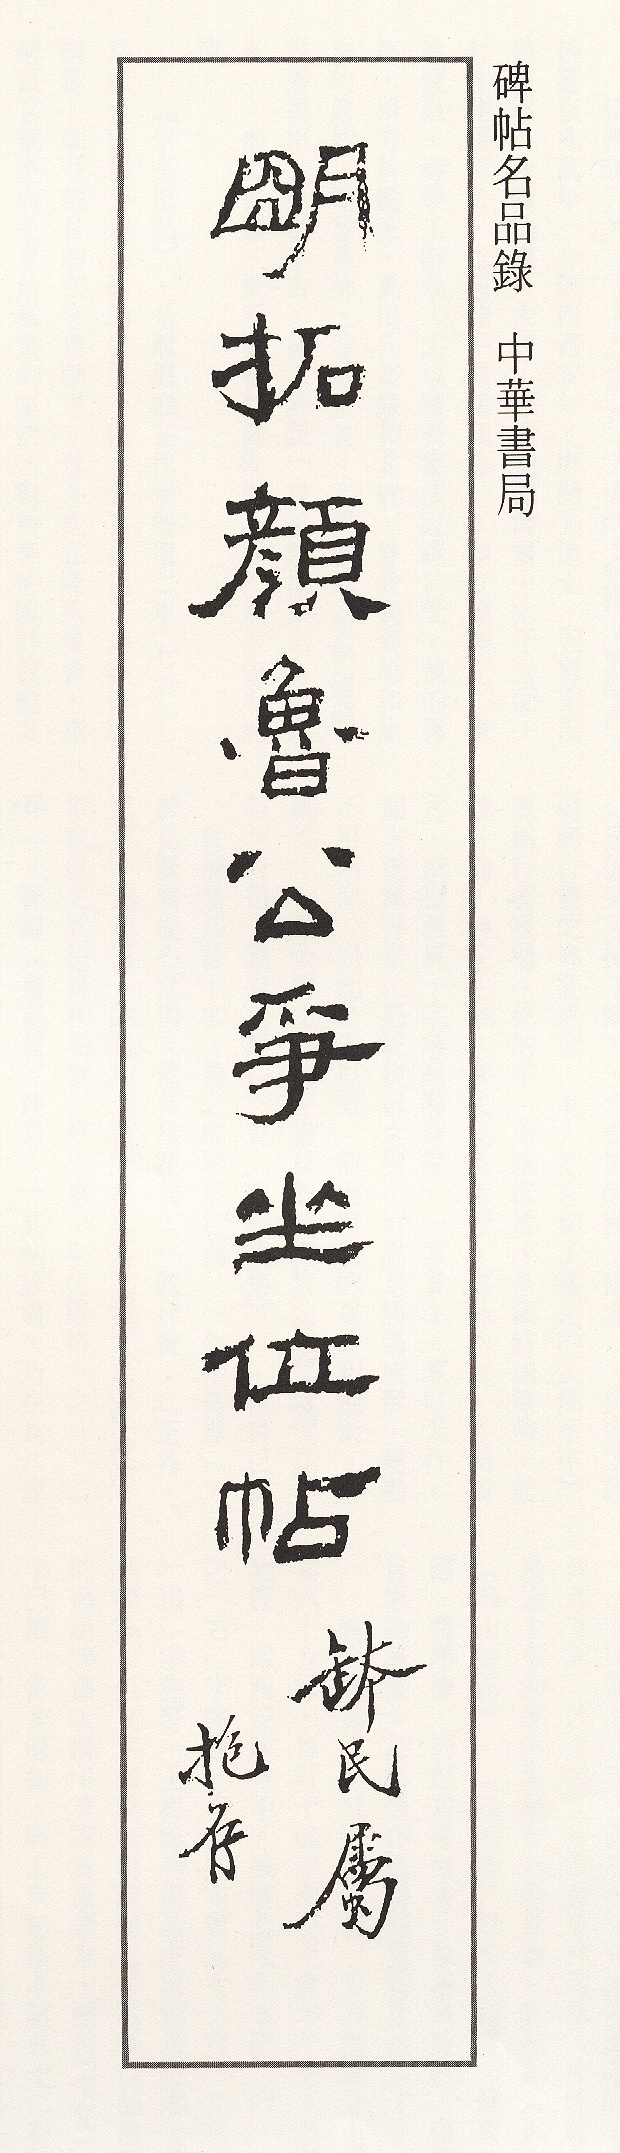 碑帖名品錄　中華書局
明拓顏魯公爭坐位帖
缽民屬
抱存